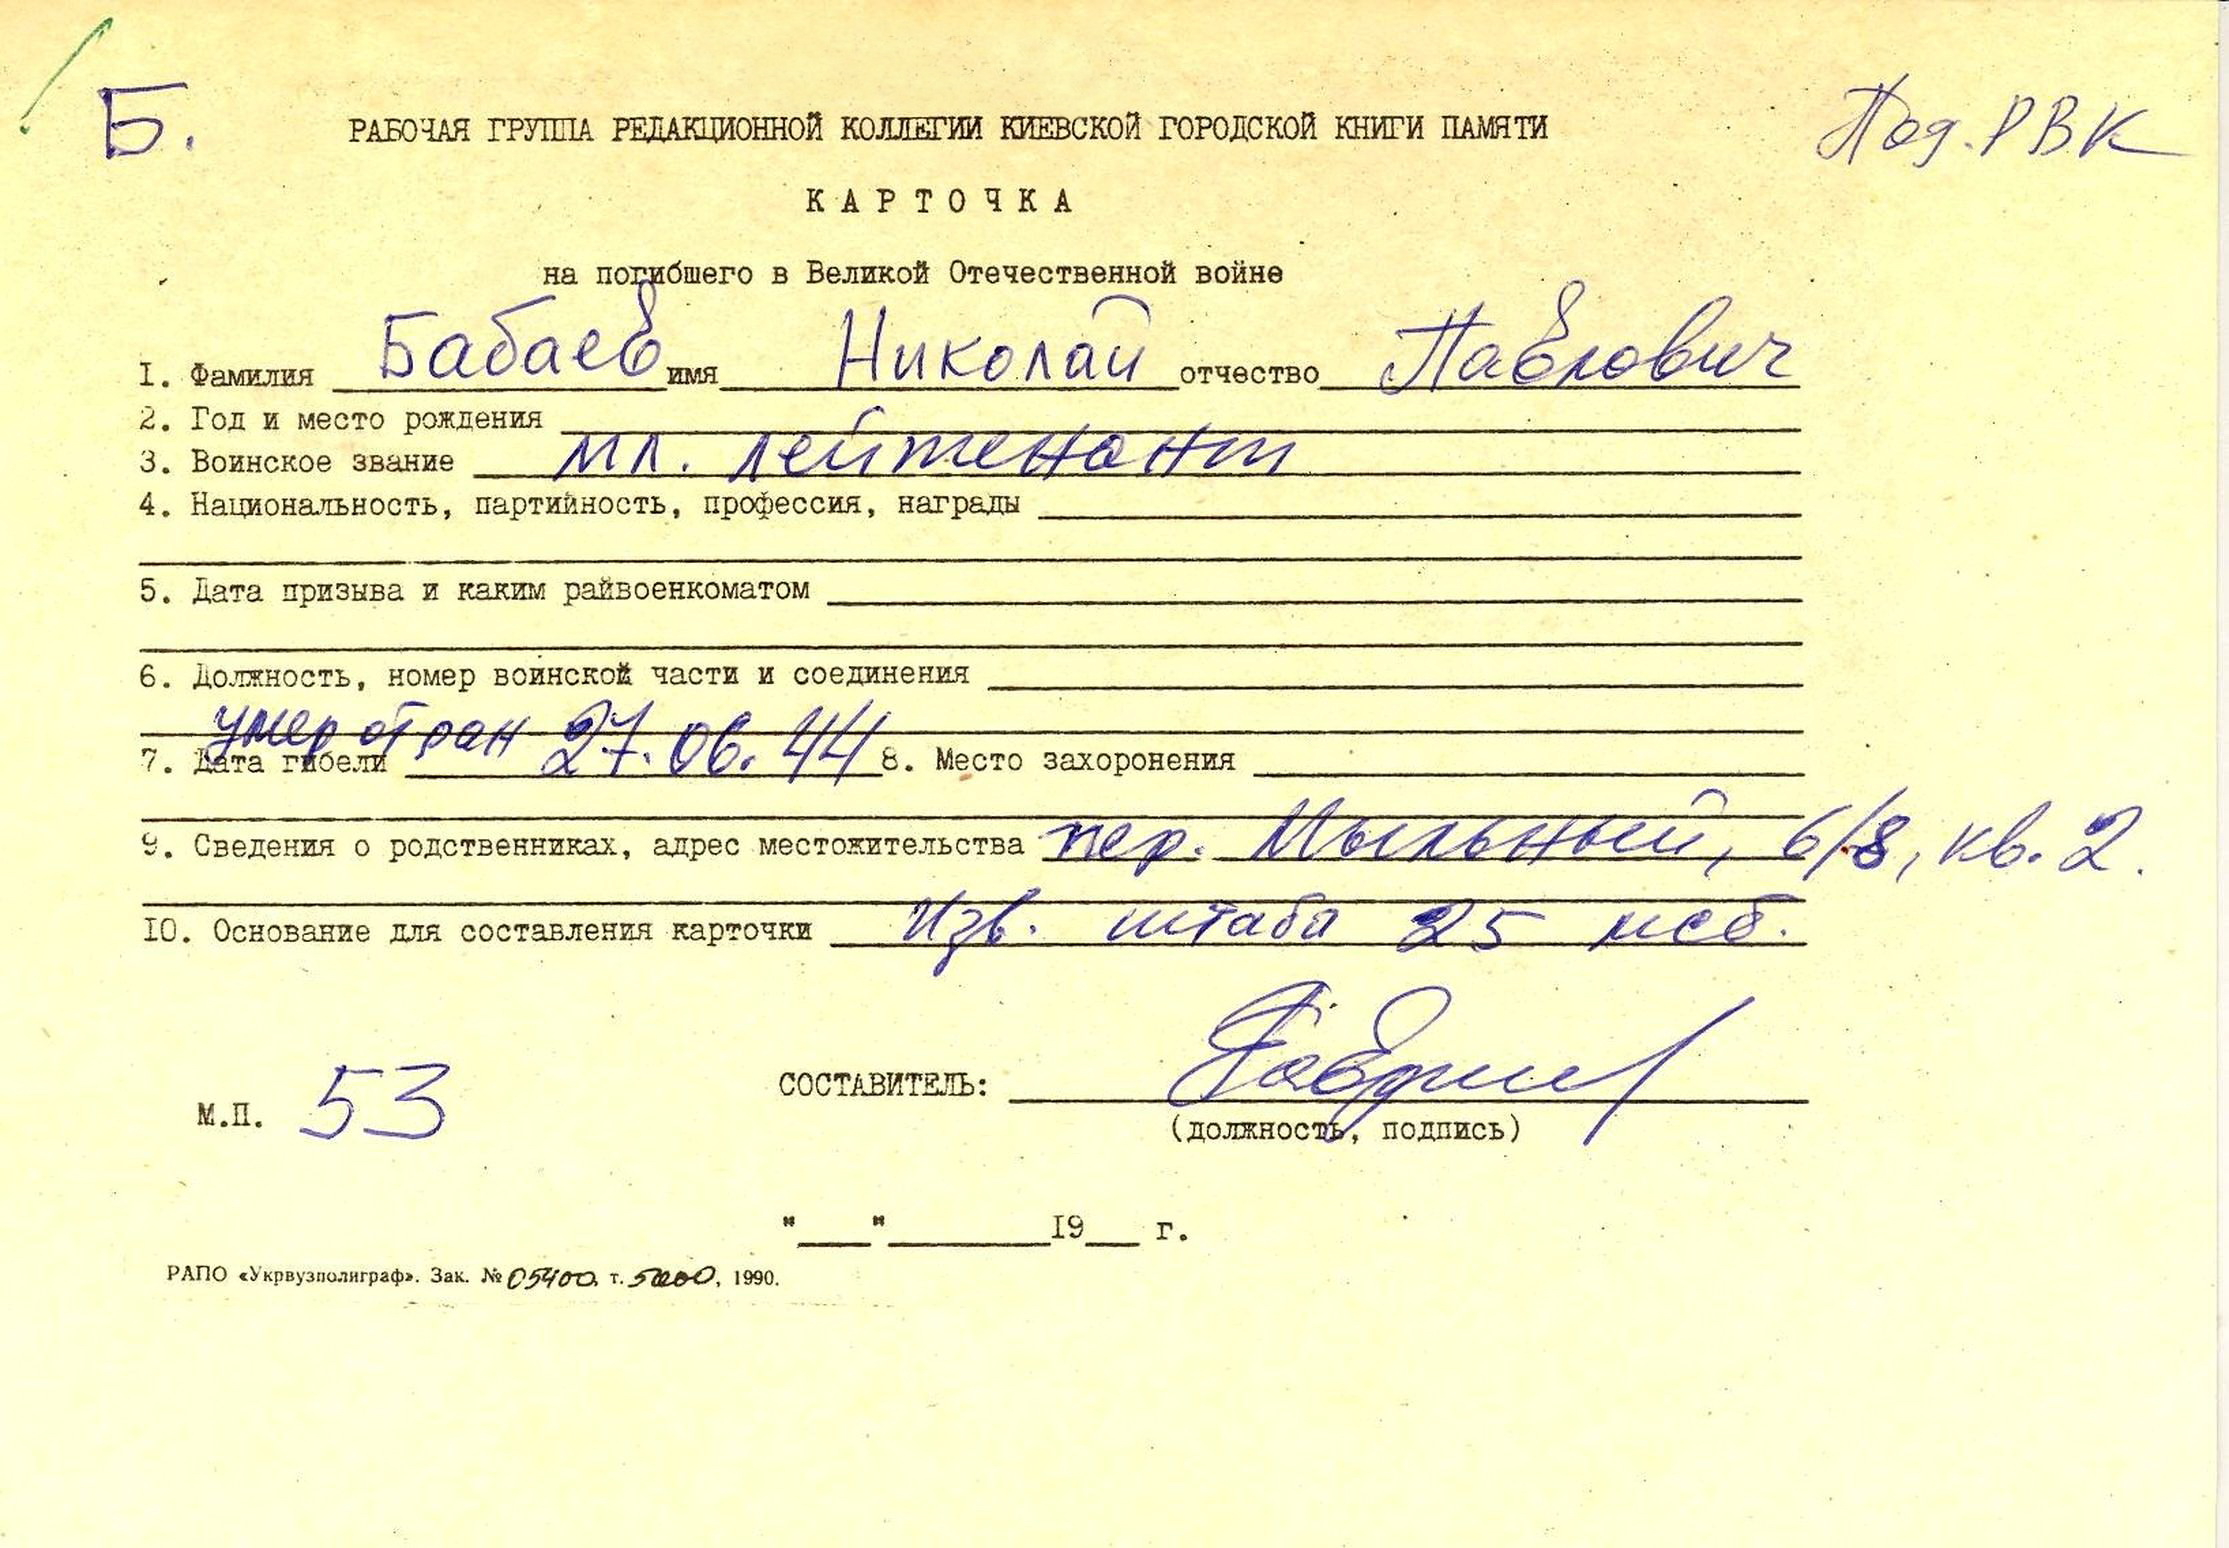 Б.
Под. РВК
РАБОЧАЯ ГРУППА РЕДАКЦИОННОЙ КОЛЛЕГИИ КИЕВСКОЙ ГОРОДСКОЙ КНИГИ ПАМЯТИ
КАРТОЧКА
на погибшего в Великой Отечественной войне
I. Фамилия Бабаев имя Николай отчество Павлович
2. Год и место рождения
3. Воинское звание мл. лейтенант
4. Национальность, партийность, профессия, награды
5. Дата призыва и каким райвоенкоматом
6. Должность, номер воинской части и соединения
умер от ран
7. Дата гибели 27.06.44 8. Место захоронения
9. Сведения о родственниках, адрес местожительства пер. Мыльный, 6/8, кв. 2.
I0. Основание для составления карточки Изв. штаба 25 мсб.
М.П. 53
СОСТАВИТЕЛЬ:
(должность, подпись)
"___"_________I9___ г.
РАПО «Укрвузполиграф». Зак. № 05400 т. 5000, 1990.